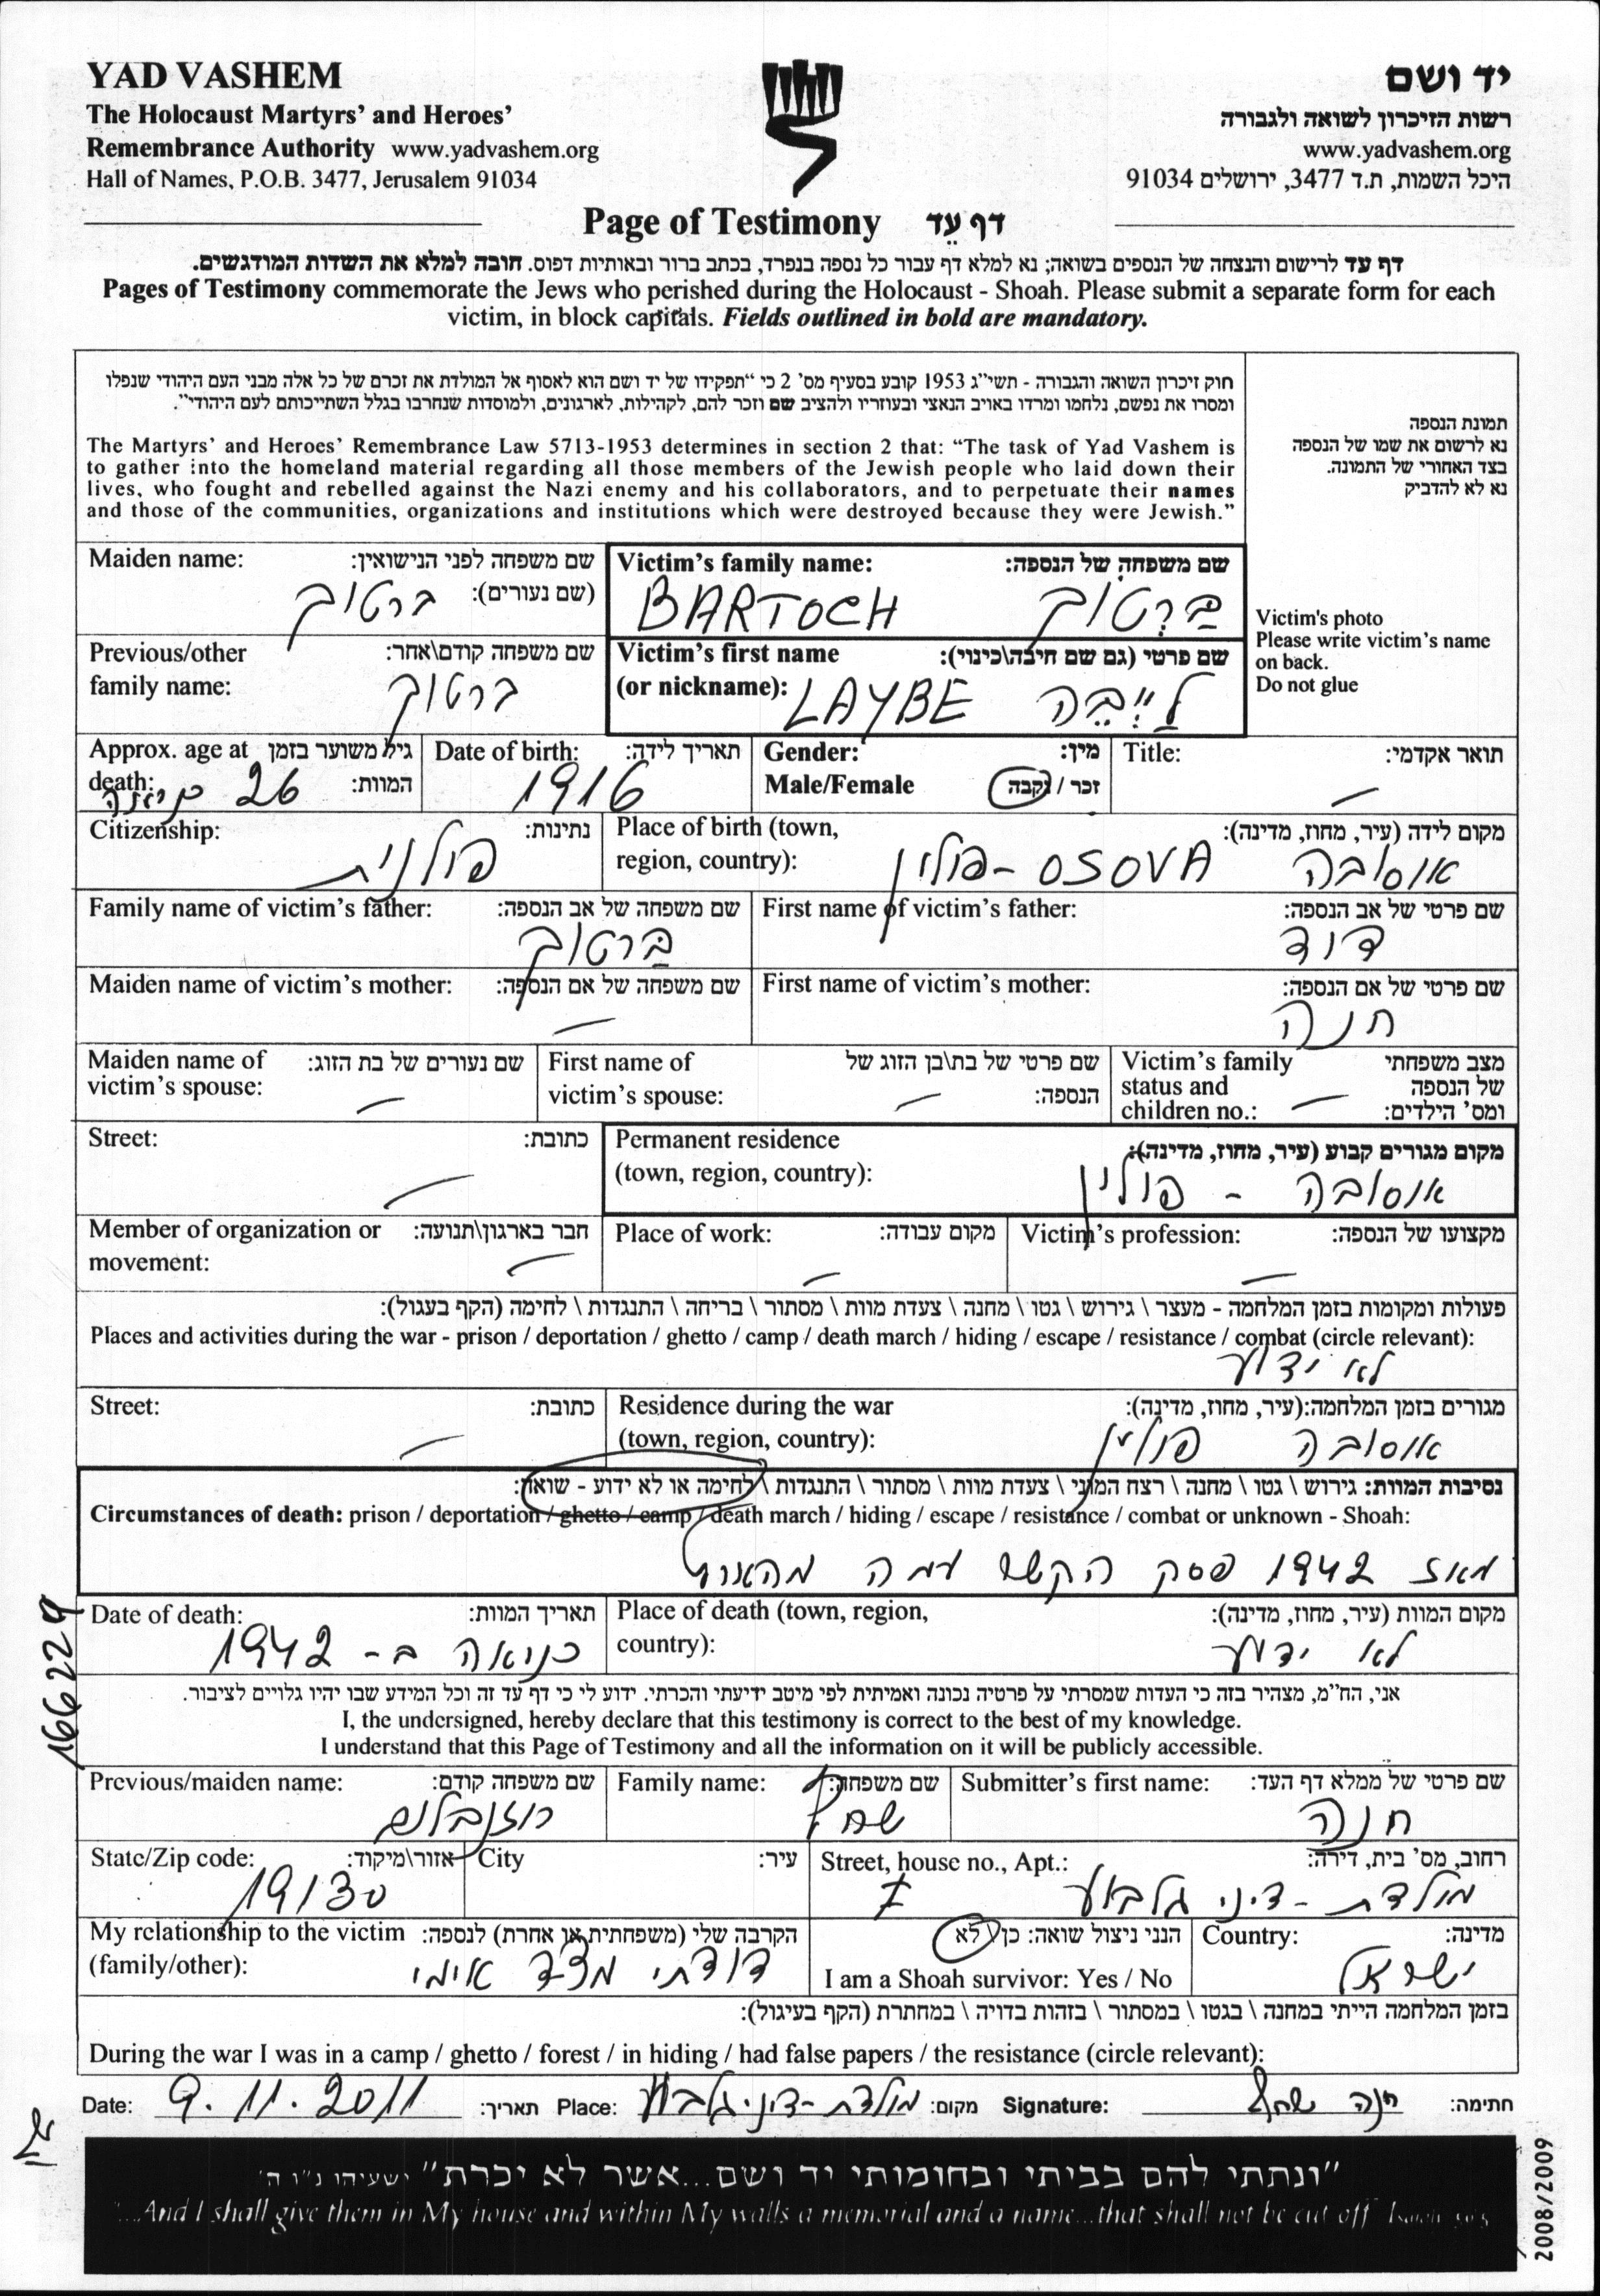 YAD VASHEM
The Holocaust Martyrs' and Heroes'
Remembrance Authority www.yadvashem.org
Hall of Names, P.O.B. 3477, Jerusalem 91034
יד ושם
רשות הזיכרון לשואה ולגבורה
www.yadvashem.org
היכל השמות, ת.ד 3477, ירושלים 91034
Page of Testimony דף עֵד
דף עד לרישום והנצחה של הנספים בשואה; נא למלא דף עבור כל נספה בנפרד, בכתב ברור ובאותיות דפוס. חובה למלא את השדות המודגשים.
Pages of Testimony commemorate the Jews who perished during the Holocaust - Shoah. Please submit a separate form for each
victim, in block capitals. Fields outlined in bold are mandatory.
חוק זיכרון השואה והגבורה - תשי"ג 1953 קובע בסעיף מס' 2 כי "תפקידו של יד ושם הוא לאסוף אל המולדת את זכרם של כל אלה מבני העם היהודי שנפלו
ומסרו את נפשם, נלחמו ומרדו באויב הנאצי ובעוזריו ולהציב שם וזכר להם, לקהילות, לארגונים, ולמוסדות שנחרבו בגלל השתייכותם לעם היהודי".
The Martyrs' and Heroes' Remembrance Law 5713-1953 determines in section 2 that: "The task of Yad Vashem is
to gather into the homeland material regarding all those members of the Jewish people who laid down their
lives, who fought and rebelled against the Nazi enemy and his collaborators, and to perpetuate their names
and those of the communities, organizations and institutions which were destroyed because they were Jewish."
תמונת הנספה
נא לרשום את שמו של הנספה
בצד האחורי של התמונה.
נא לא להדביק
Victim's photo
Please write victim's name
on back.
Do not glue
Maiden name: שם משפחה לפני הנישואין:
(שם נעורים): ברטוך
Victim's family name: שם משפחה של הנספה:
BARTOCH בַּרְטוֹך
Previous/other שם משפחה קודם\אחר:
family name: ברטוך
Victim's first name שם פרטי (גם שם חיבה\כינוי):
(or nickname): LAYBE לַיְיבֵּה
Approx. age at גיל משוער בזמן
death: המוות: 26
Date of birth: תאריך לידה:
1916
Gender: מין:
Male/Female זכר / נקבה
Title: תואר אקדמי:
–
Citizenship: נתינות:
פולנית
Place of birth (town, מקום לידה (עיר, מחוז, מדינה):
region, country): אוסובה OSOVA - פולין
Family name of victim's father: שם משפחה של אב הנספה:
בַּרטוך
First name of victim's father: שם פרטי של אב הנספה:
דוד
Maiden name of victim's mother: שם משפחה של אם הנספה:
–
First name of victim's mother: שם פרטי של אם הנספה:
חנה
Maiden name of שם נעורים של בת הזוג:
victim's spouse: –
First name of שם פרטי של בת\בן הזוג של
victim's spouse: הנספה: –
Victim's family מצב משפחתי
status and של הנספה
children no.: ומס' הילדים: –
Street: כתובת:
–
Permanent residence מקום מגורים קבוע (עיר, מחוז, מדינה):
(town, region, country): אוסובה - פולין
Member of organization or חבר בארגון\תנועה:
movement: –
Place of work: מקום עבודה:
–
Victim's profession: מקצועו של הנספה:
–
פעולות ומקומות בזמן המלחמה - מעצר \ גירוש \ גטו \ מחנה \ צעדת מוות \ מסתור \ בריחה \ התנגדות \ לחימה (הקף בעגול):
Places and activities during the war - prison / deportation / ghetto / camp / death march / hiding / escape / resistance / combat (circle relevant):
לא ידוע
Street: כתובת:
–
Residence during the war מגורים בזמן המלחמה:(עיר, מחוז, מדינה):
(town, region, country): אוסובה פולין
נסיבות המוות: גירוש \ גטו \ מחנה \ רצח המוני \ צעדת מוות \ מסתור \ התנגדות \ לחימה או לא ידוע - שואה:
Circumstances of death: prison / deportation / ghetto / camp / death march / hiding / escape / resistance / combat or unknown - Shoah:
מאז 1942 פסק הקשר עמה
Date of death: תאריך המוות:
כנראה ב- 1942
Place of death (town, region, מקום המוות (עיר, מחוז, מדינה):
country): לא ידוע
אני, הח"מ, מצהיר בזה כי העדות שמסרתי על פרטיה נכונה ואמיתית לפי מיטב ידיעתי והכרתי. ידוע לי כי דף עד זה וכל המידע שבו יהיו גלויים לציבור.
I, the undersigned, hereby declare that this testimony is correct to the best of my knowledge.
I understand that this Page of Testimony and all the information on it will be publicly accessible.
Previous/maiden name: שם משפחה קודם:
רוזנבלום
Family name: שם משפחה:
שחף
Submitter's first name: שם פרטי של ממלא דף העד:
חנה
State/Zip code: אזור\מיקוד:
19130
City עיר:
Street, house no., Apt.: רחוב, מס' בית, דירה:
מולדת - ד.נ. גלבוע
My relationship to the victim הקרבה שלי (משפחתית או אחרת) לנספה:
(family/other): דודתי מצד אימי
הנני ניצול שואה: כן \ לא
I am a Shoah survivor: Yes / No
Country: מדינה:
ישראל
בזמן המלחמה הייתי במחנה \ בגטו \ במסתור \ בזהות בדויה \ במחתרת (הקף בעיגול):
During the war I was in a camp / ghetto / forest / in hiding / had false papers / the resistance (circle relevant):
Date: 9.11.2011 תאריך: Place: מולדת-ד.נ. גלבוע מקום: Signature: חנה שחף חתימה:
"ונתתי להם בביתי ובחומותי יד ושם...אשר לא יכרת" ישעיהו נ"ו ה'
"...And I shall give them in My house and within My walls a memorial and a name...that shall not be cut off" Isaiah 56:5
166229
2008/2009